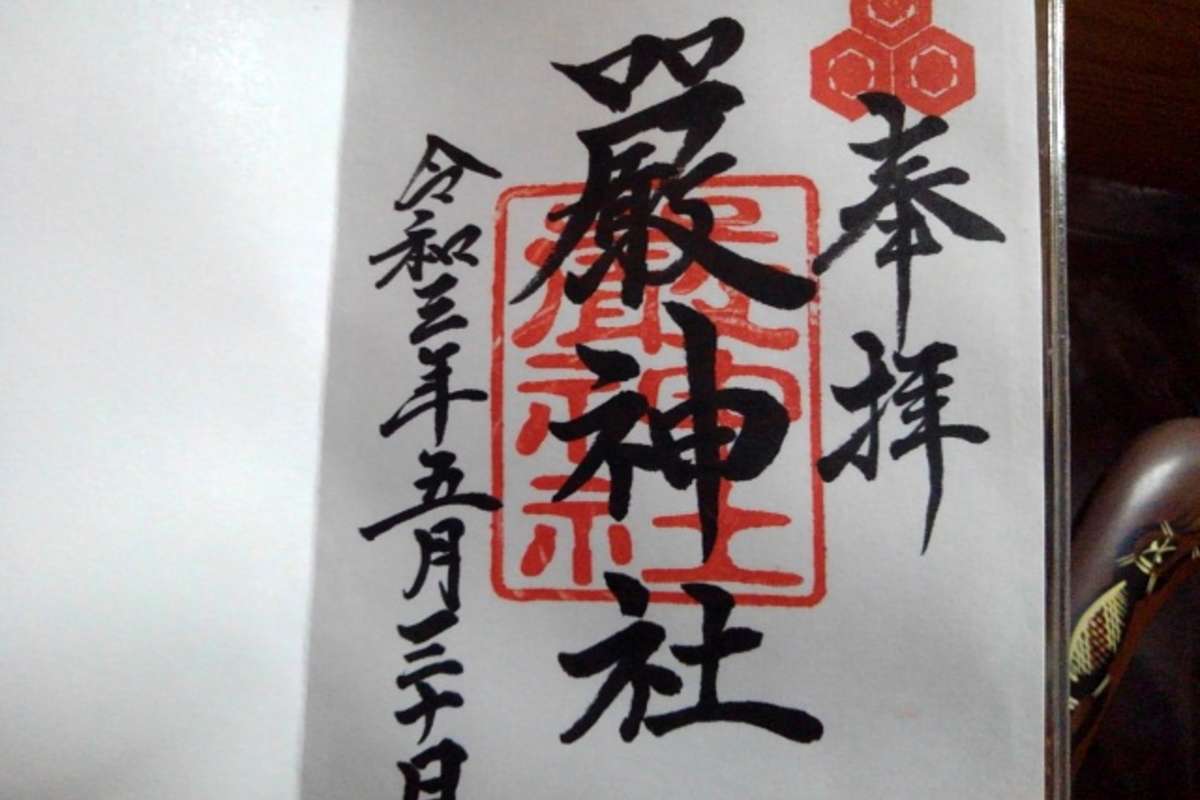 奉拝
嚴神社
嚴神社
令和三年五月三十日